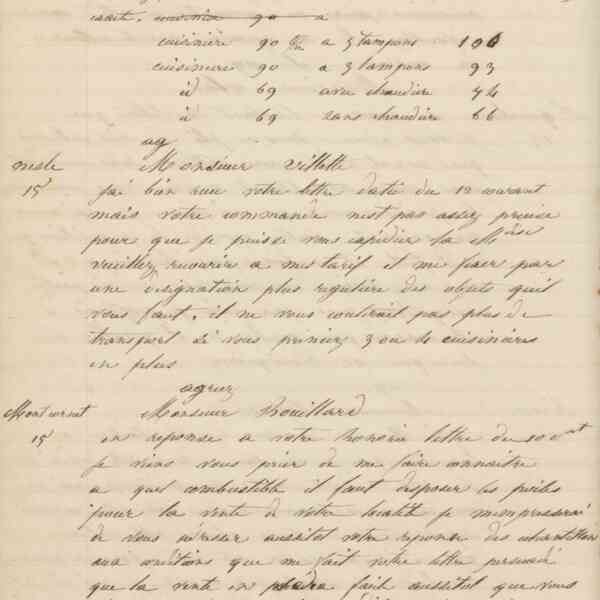 cuisinière 90 c/m a 3 tampons 106
cuisiniere 90 a 3 tampons 93
id 69 avec chaudière 74
id 69 sans chaudière 66
ag
nesle Monsieur Villette
15 j'ai bien recu votre lettre datée du 12 courant
mais votre commande n'est pas assez precise
pour que je puisse vous expedier la Mdise
veuillez recourir a mes tarif et me fixer par
une designation plus reguliere des objets quil
vous faut. il ne vous couterait pas plus de
transport si vous preniez 3 ou 4 cuisinières
en plus
agreez
Montcornet Monsieur Rouillard
15 en reponse a votre honorée lettre du 10 cnt
je viens vous prier de me faire connaitre
a quel combustible il faut disposer les poëles
pour la vente de votre localité je m'empresserai
de vous adresser aussitot votre reponse des echantillons
aux conditions que me fait votre lettre persuadé
que la vente en sera facile aussitot que vous